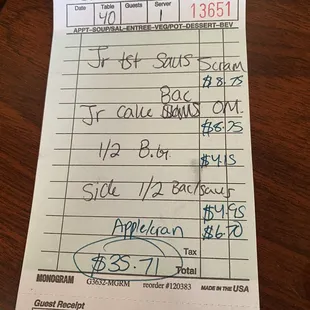 Date Table Guests Server
40 1 13651
APPT-SOUP/SAL-ENTREE-VEG/POT-DESSERT-BEV
Jr tst Saus Scram
$8.75
Bac
Jr cake OM.
$8.75
1/2 B.G.
$4.15
Side 1/2 Bac/saus
$4.95
Apple/cran $6.70
Tax
$35.71 Total
MONOGRAM G3632-MGRM reorder #120383 MADE IN THE USA
Guest Receipt